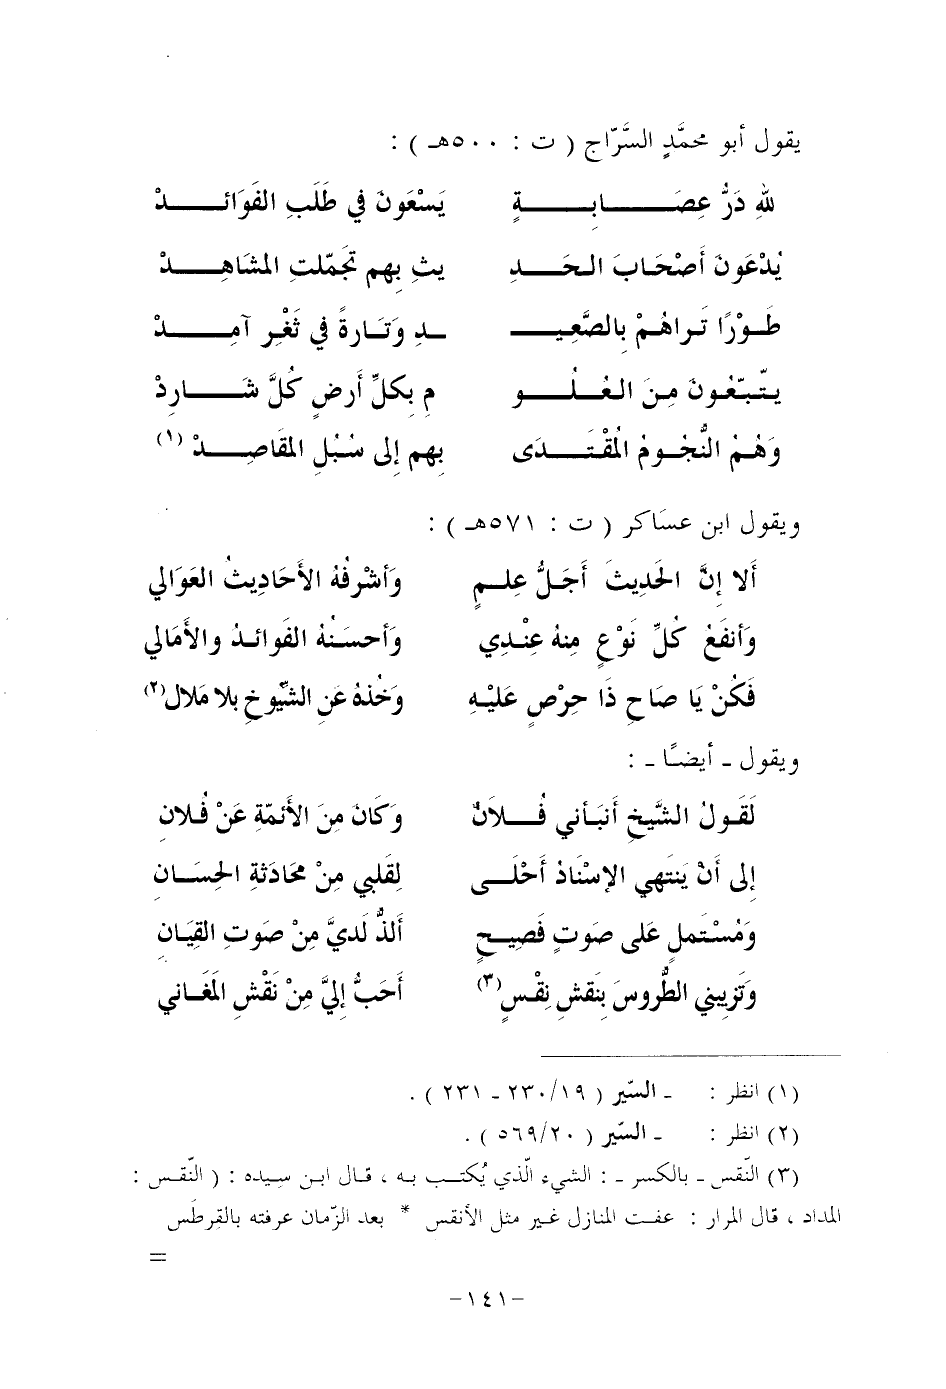 يقول أبو محمَّدٍ السَّرّاج ( ت : ٥٠٠هـ ) :
للهِ دَرُّ عِصَـابَـةٍ يَسْعَونَ في طَلَبِ الفَوَائـدْ
يُدْعَونَ أَصْحَابَ الـحَـدِ يثِ بِهِم تجَمَّلتِ المشَاهِـدْ
طَـوْرًا تَـراهُـمْ بِالصَّعِيـ ـدِ وَتَـارةً في ثَغْـرِ آمِـدْ
يـتَـبّعُـونَ مِـنَ العُـلُـو مِ بِكلِّ أَرضٍ كُلَّ شَـارِدْ
وَهُـمُ النُّجُـومُ المُقْتَـدَى بِهِم إِلى سُبُلِ المقَاصِـدْ (١)
ويقول ابن عسَاكر ( ت : ٥٧١هـ ) :
أَلا إِنَّ الحَدِيثَ أَجَلُّ عِلـمٍ وَأَشْرفُهُ الأَحَادِيثُ العَوَالي
وَأَنفَعُ كُلِّ نَوْعٍ مِنهُ عِنْدِي وَأَحسَنُهُ الفَوائدُ والأَمَالي
فَكُنْ يَا صَاحِ ذَا حِرْصٍ عَليْهِ وَخُذهُ عَنِ الشّيُوخِ بلا مَلال(٢)
ويقول ـ أيضًا ـ :
لَقَولُ الشَّيخِ أَنبَأني فُـلَانٌ وَكَانَ مِنَ الأَئمّةِ عَنْ فُلانِ
إِلى أَنْ يَنتَهِي الإِسْنَادُ أَحْلَـى لِقَلبي مِنْ محَادثَةِ الحِسَـانِ
وَمُسْتَملٍ عَلى صَوتٍ فَصِيـحٍ أَلذُّ لَديَّ مِنْ صَوتِ القِيَانِ
وَتَزيِيني الطُّروسَ بِنَقشِ نِقْسٍ(٣) أَحَبُّ إِليَّ مِنْ نَقْشِ المَغَـاني
(١) انظر : ـ السّير ( ١٩/ ٢٣٠ ـ ٢٣١ ) .
(٢) انظر : ـ السّير ( ٢٠/ ٥٦٩ ) .
(٣) النّقس ـ بالكسر ـ : الشيء الّذي يُكتـب بـه ، قـال ابـن سِيـده : ( النّقـس :
المداد ، قال المرار : عفـت المنازل غـير مثل الأنقس * بعد الزّمان عرفته بالقِرطَس
=
-١٤١-